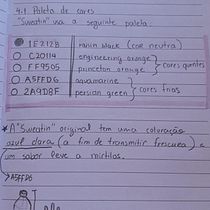 4.1 Paleta de cores
"Sweatin" usa a seguinte paleta:
1E212B raisin black (cor neutra)
C20114 engineering orange
FF9505 princeton orange
cores quentes
A5FFD6 aquamarine
2A9D8F persian green
cores frias
* A "Sweatin" original tem uma coloração
azul clara (a fim de transmitir frescura) e
um sabor leve a mirtilos.
A5FFD6